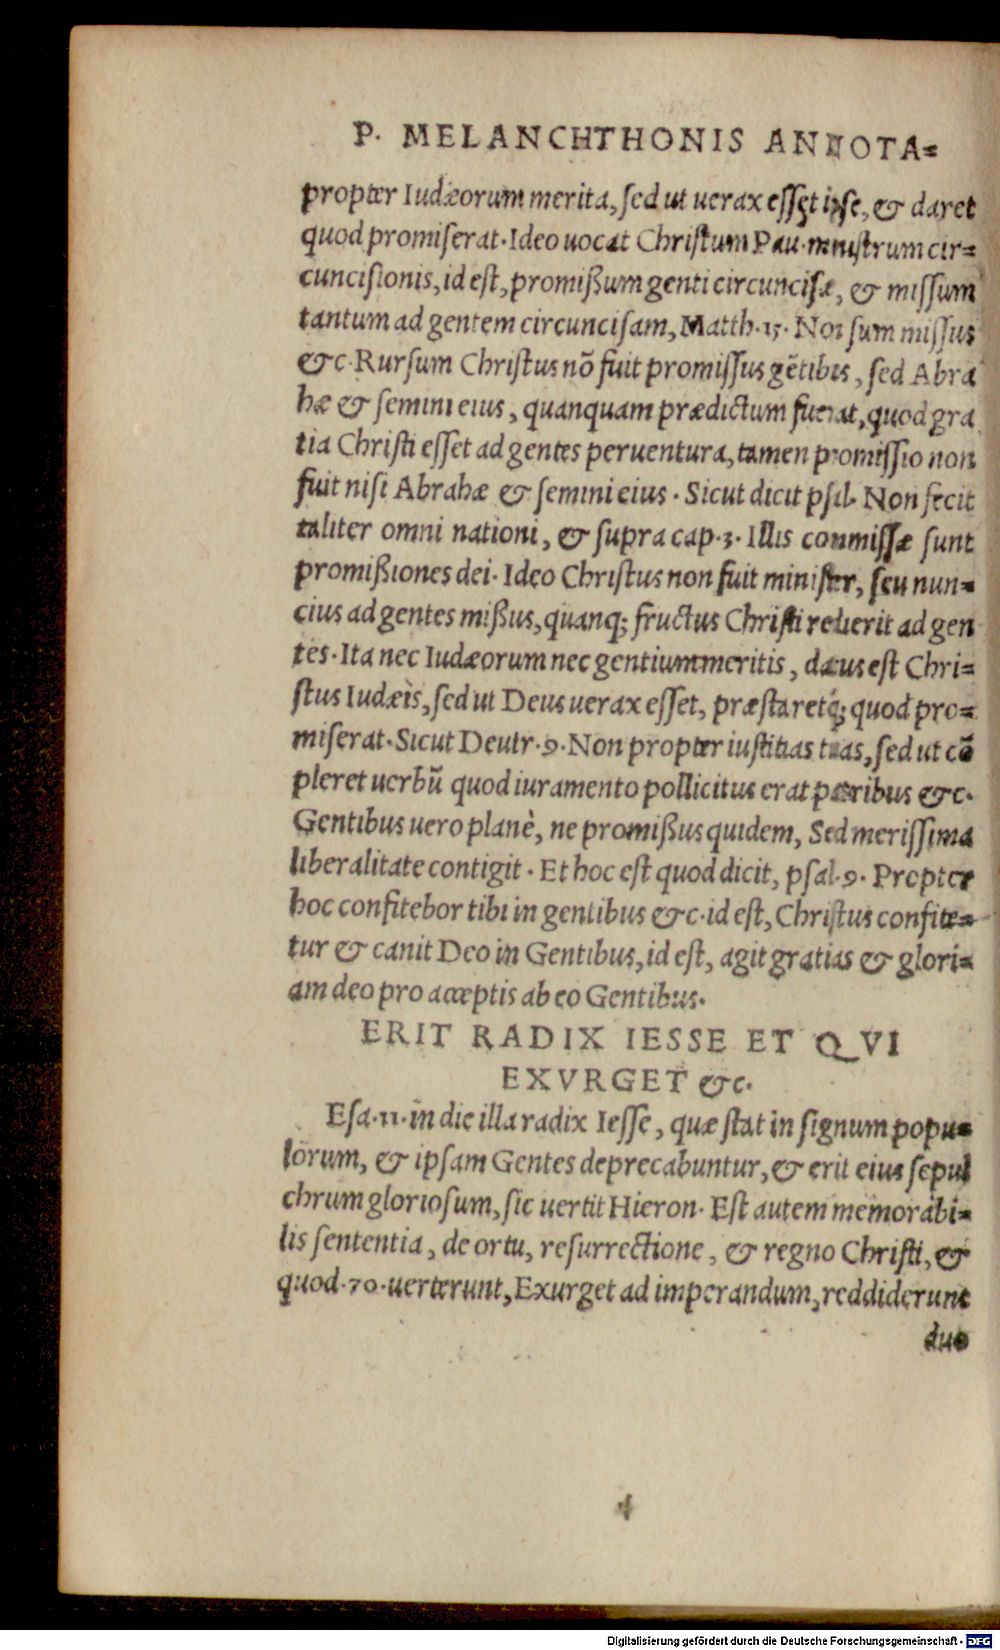 P. MELANCHTHONIS ANNOTA=
propter Iudæorum merita, sed ut uerax esset ipse, & daret
quod promiserat. Ideo uocat Christum Pau. ministrum cir=
cuncisionis, id est, promißum genti circuncisæ, & missum
tantum ad gentem circuncisam, Matth. 15. Non sum missus
&c. Rursum Christus nõ fuit promissus gẽtibus, sed Abra
hæ & semini eius, quanquam prædictum fuerat, quod gra
tia Christi esset ad gentes peruentura, tamen promissio non
fuit nisi Abrahæ & semini eius. Sicut dicit psal. Non fecit
taliter omni nationi, & supra cap. 3. Illis commissæ sunt
promißiones dei. Ideo Christus non fuit minister, seu nun=
cius ad gentes mißus, quanq; fructus Christi redierit ad gen
tes. Ita nec Iudæorum nec gentium meritis, datus est Chri=
stus Iudæis, sed ut Deus uerax esset, præstaretq́; quod pro=
miserat. Sicut Deutr. 9. Non propter iustitias tuas, sed ut cõ
pleret uerbũ quod iuramento pollicitus erat patribus &c.
Gentibus uero planè, ne promißus quidem, Sed merissima
liberalitate contigit. Et hoc est quod dicit, psal. 9. Propter
hoc confitebor tibi in gentibus &c. id est, Christus confite=
tur & canit Deo in Gentibus, id est, agit gratias & glori=
am deo pro acceptis ab eo Gentibus.
ERIT RADIX IESSE ET QVI
EXVRGET &c.
Esa. 11. in die illa radix Iesse, quæ stat in signum popu=
lorum, & ipsam Gentes deprecabuntur, & erit eius sepul
chrum gloriosum, sic uertit Hieron. Est autem memorabi=
lis sententia, de ortu, resurrectione, & regno Christi, &
quod. 70. uerterunt, Exurget ad imperandum, reddiderunt
duo
Digitalisierung gefördert durch die Deutsche Forschungsgemeinschaft - DFG